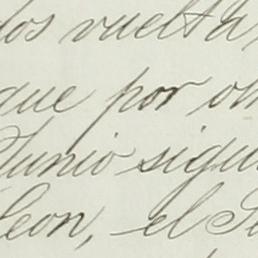 dos vuelta
que por
Junio
Leon, el